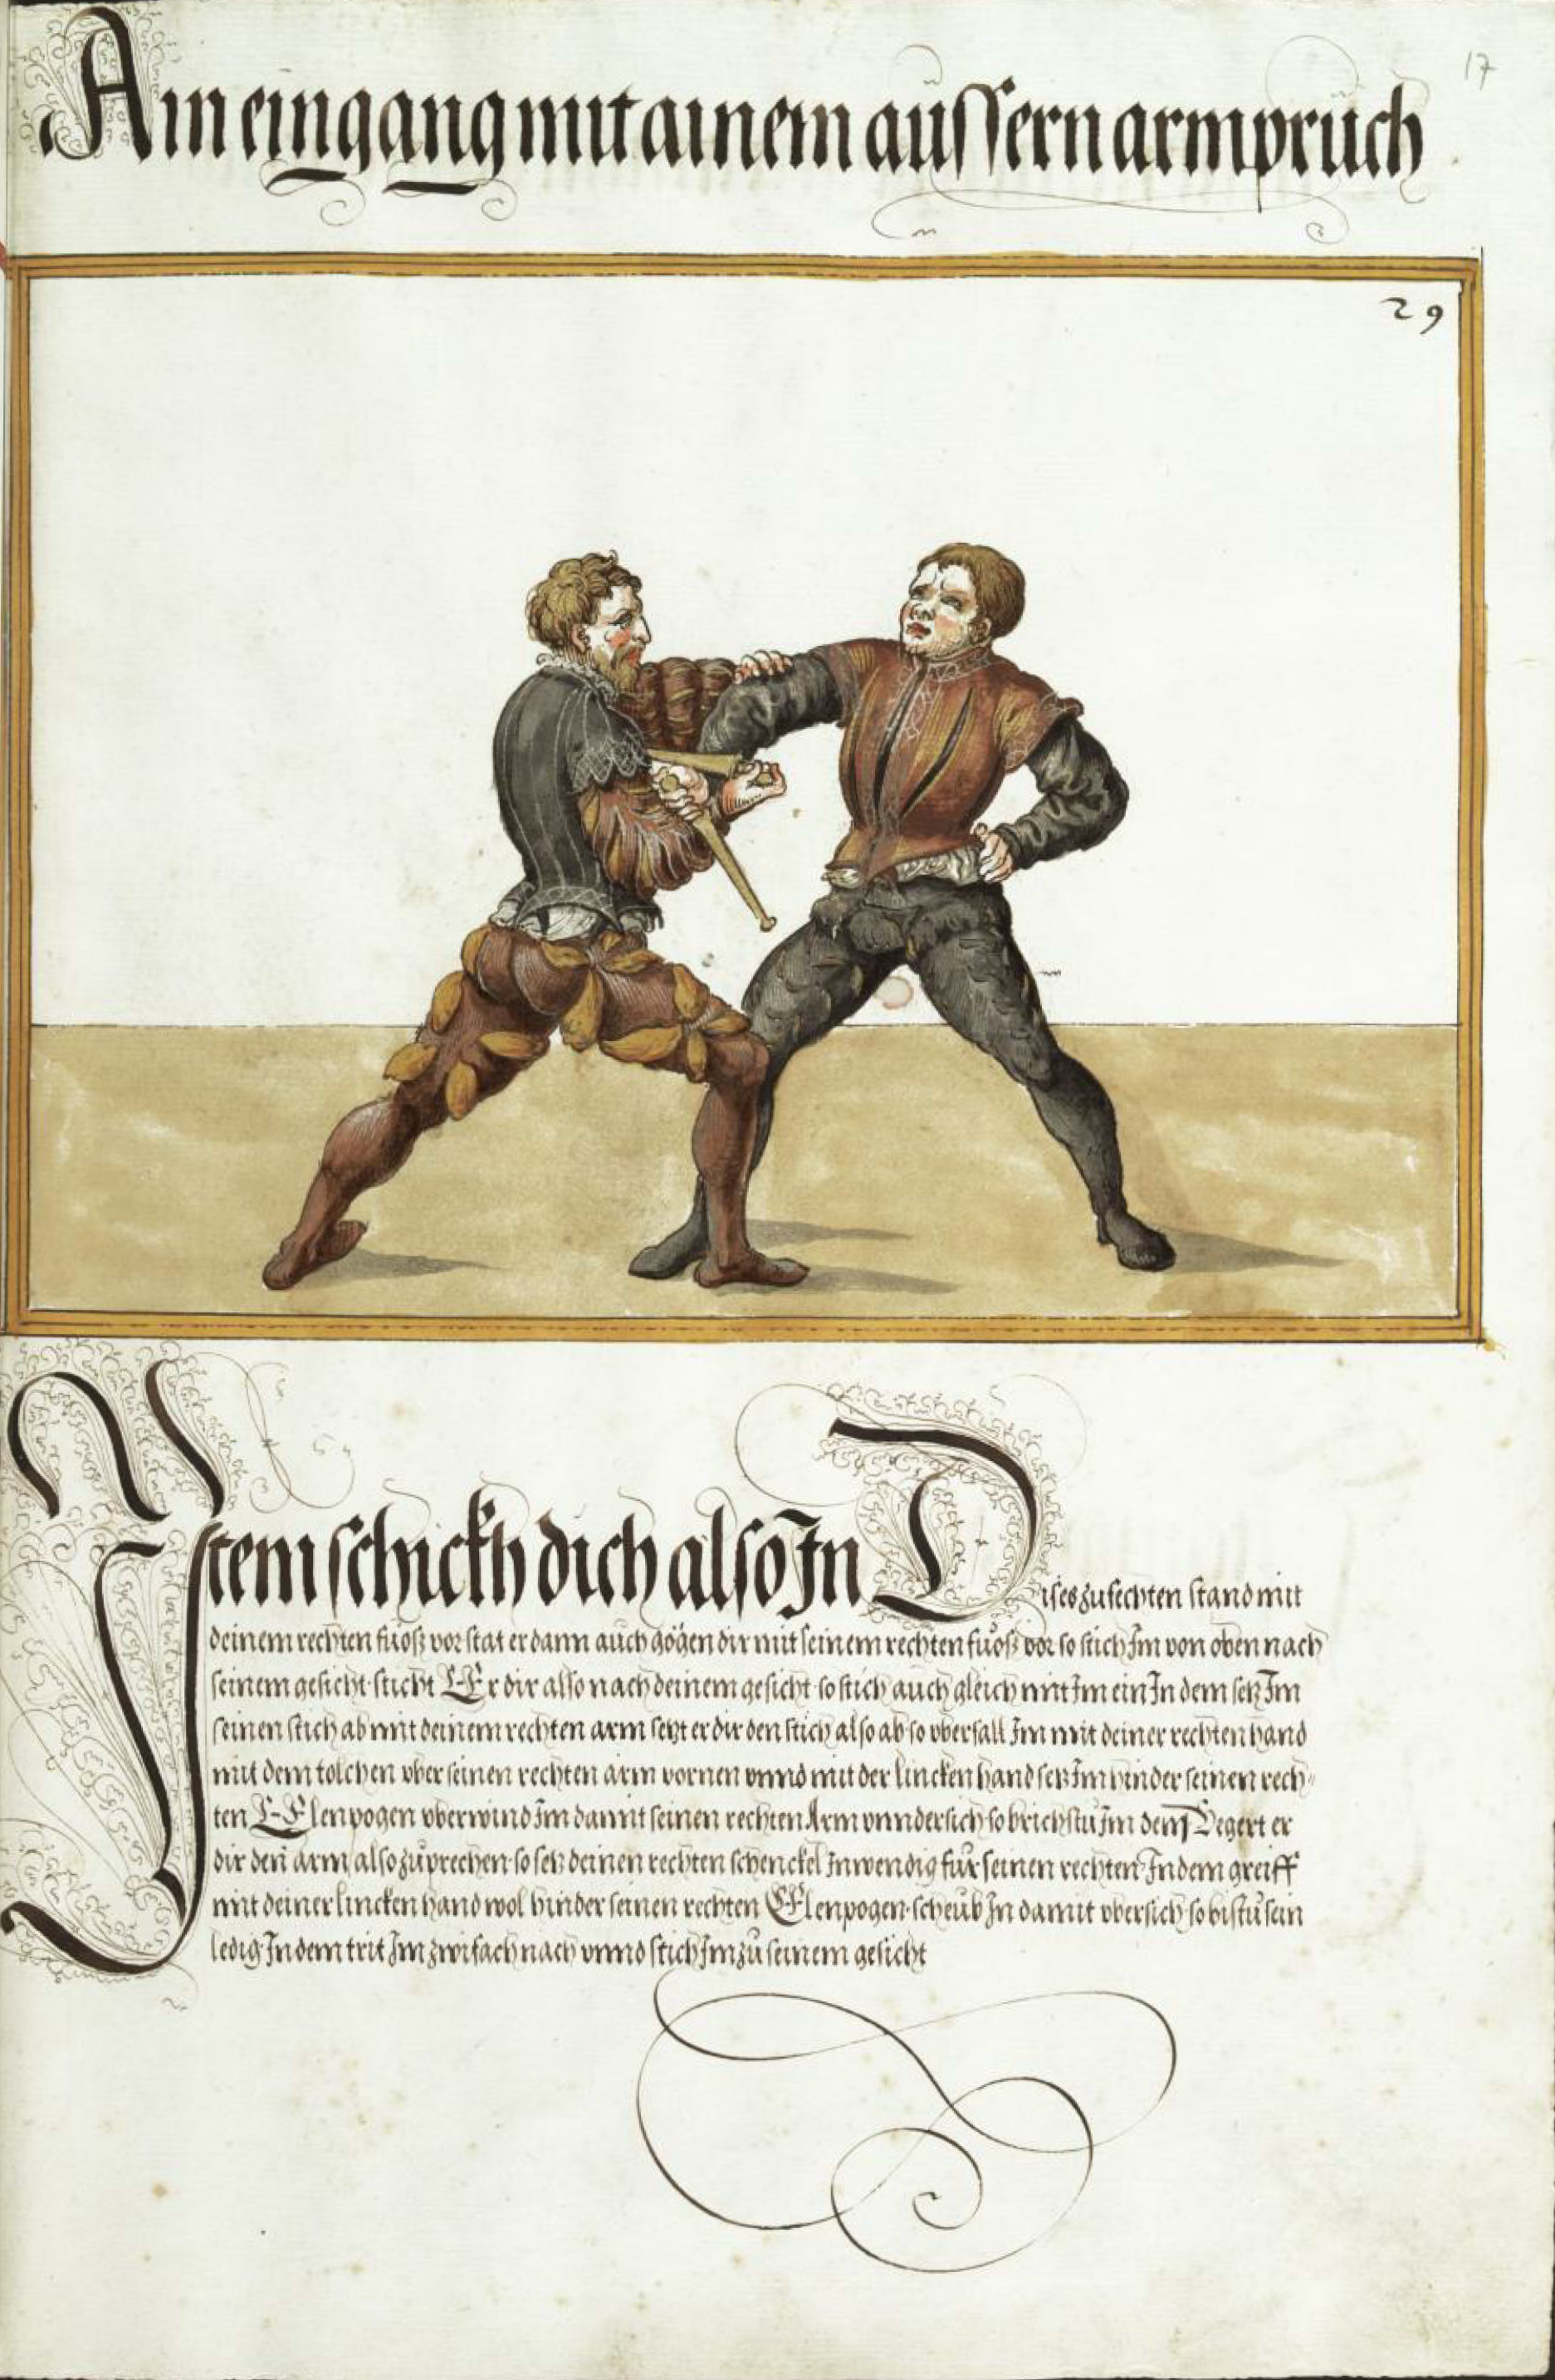 17
Ain eingang mit ainem aussern armpruch
29
Item schickh dich also In Dises zufechten stand mitt
deinem rechten fuoß vor stat er dann auch gögen dir mit seinem rechten fuoß vor so stich Im von oben nach
seinem gesicht sticht Er dir also nach deinem gesicht so stich auch gleich mit Im ein In dem setz Im
seinen stich ab mit deinem rechten arm setzt er dir den stich also ab so vberfall Im mit deiner rechten hand
mit dem tolchen vber seinen rechten arm vornen vnnd mit der lincken hand setz Im hinder seinen rech-
ten Elenpogen vberwind Im damit seinen rechten Arm vnndersich so brichstu Im den Begert er
dir den arm also zuprechen so setz deinen rechten schenckel Inwendig für seinen rechten Indem greiff
mit deiner lincken hand wol hinder seinen rechten Elenpogen scheub In damit vbersich so bistu sein
ledig Indem trit Im zwifach nach vnnd stich Im zu seinem gesicht